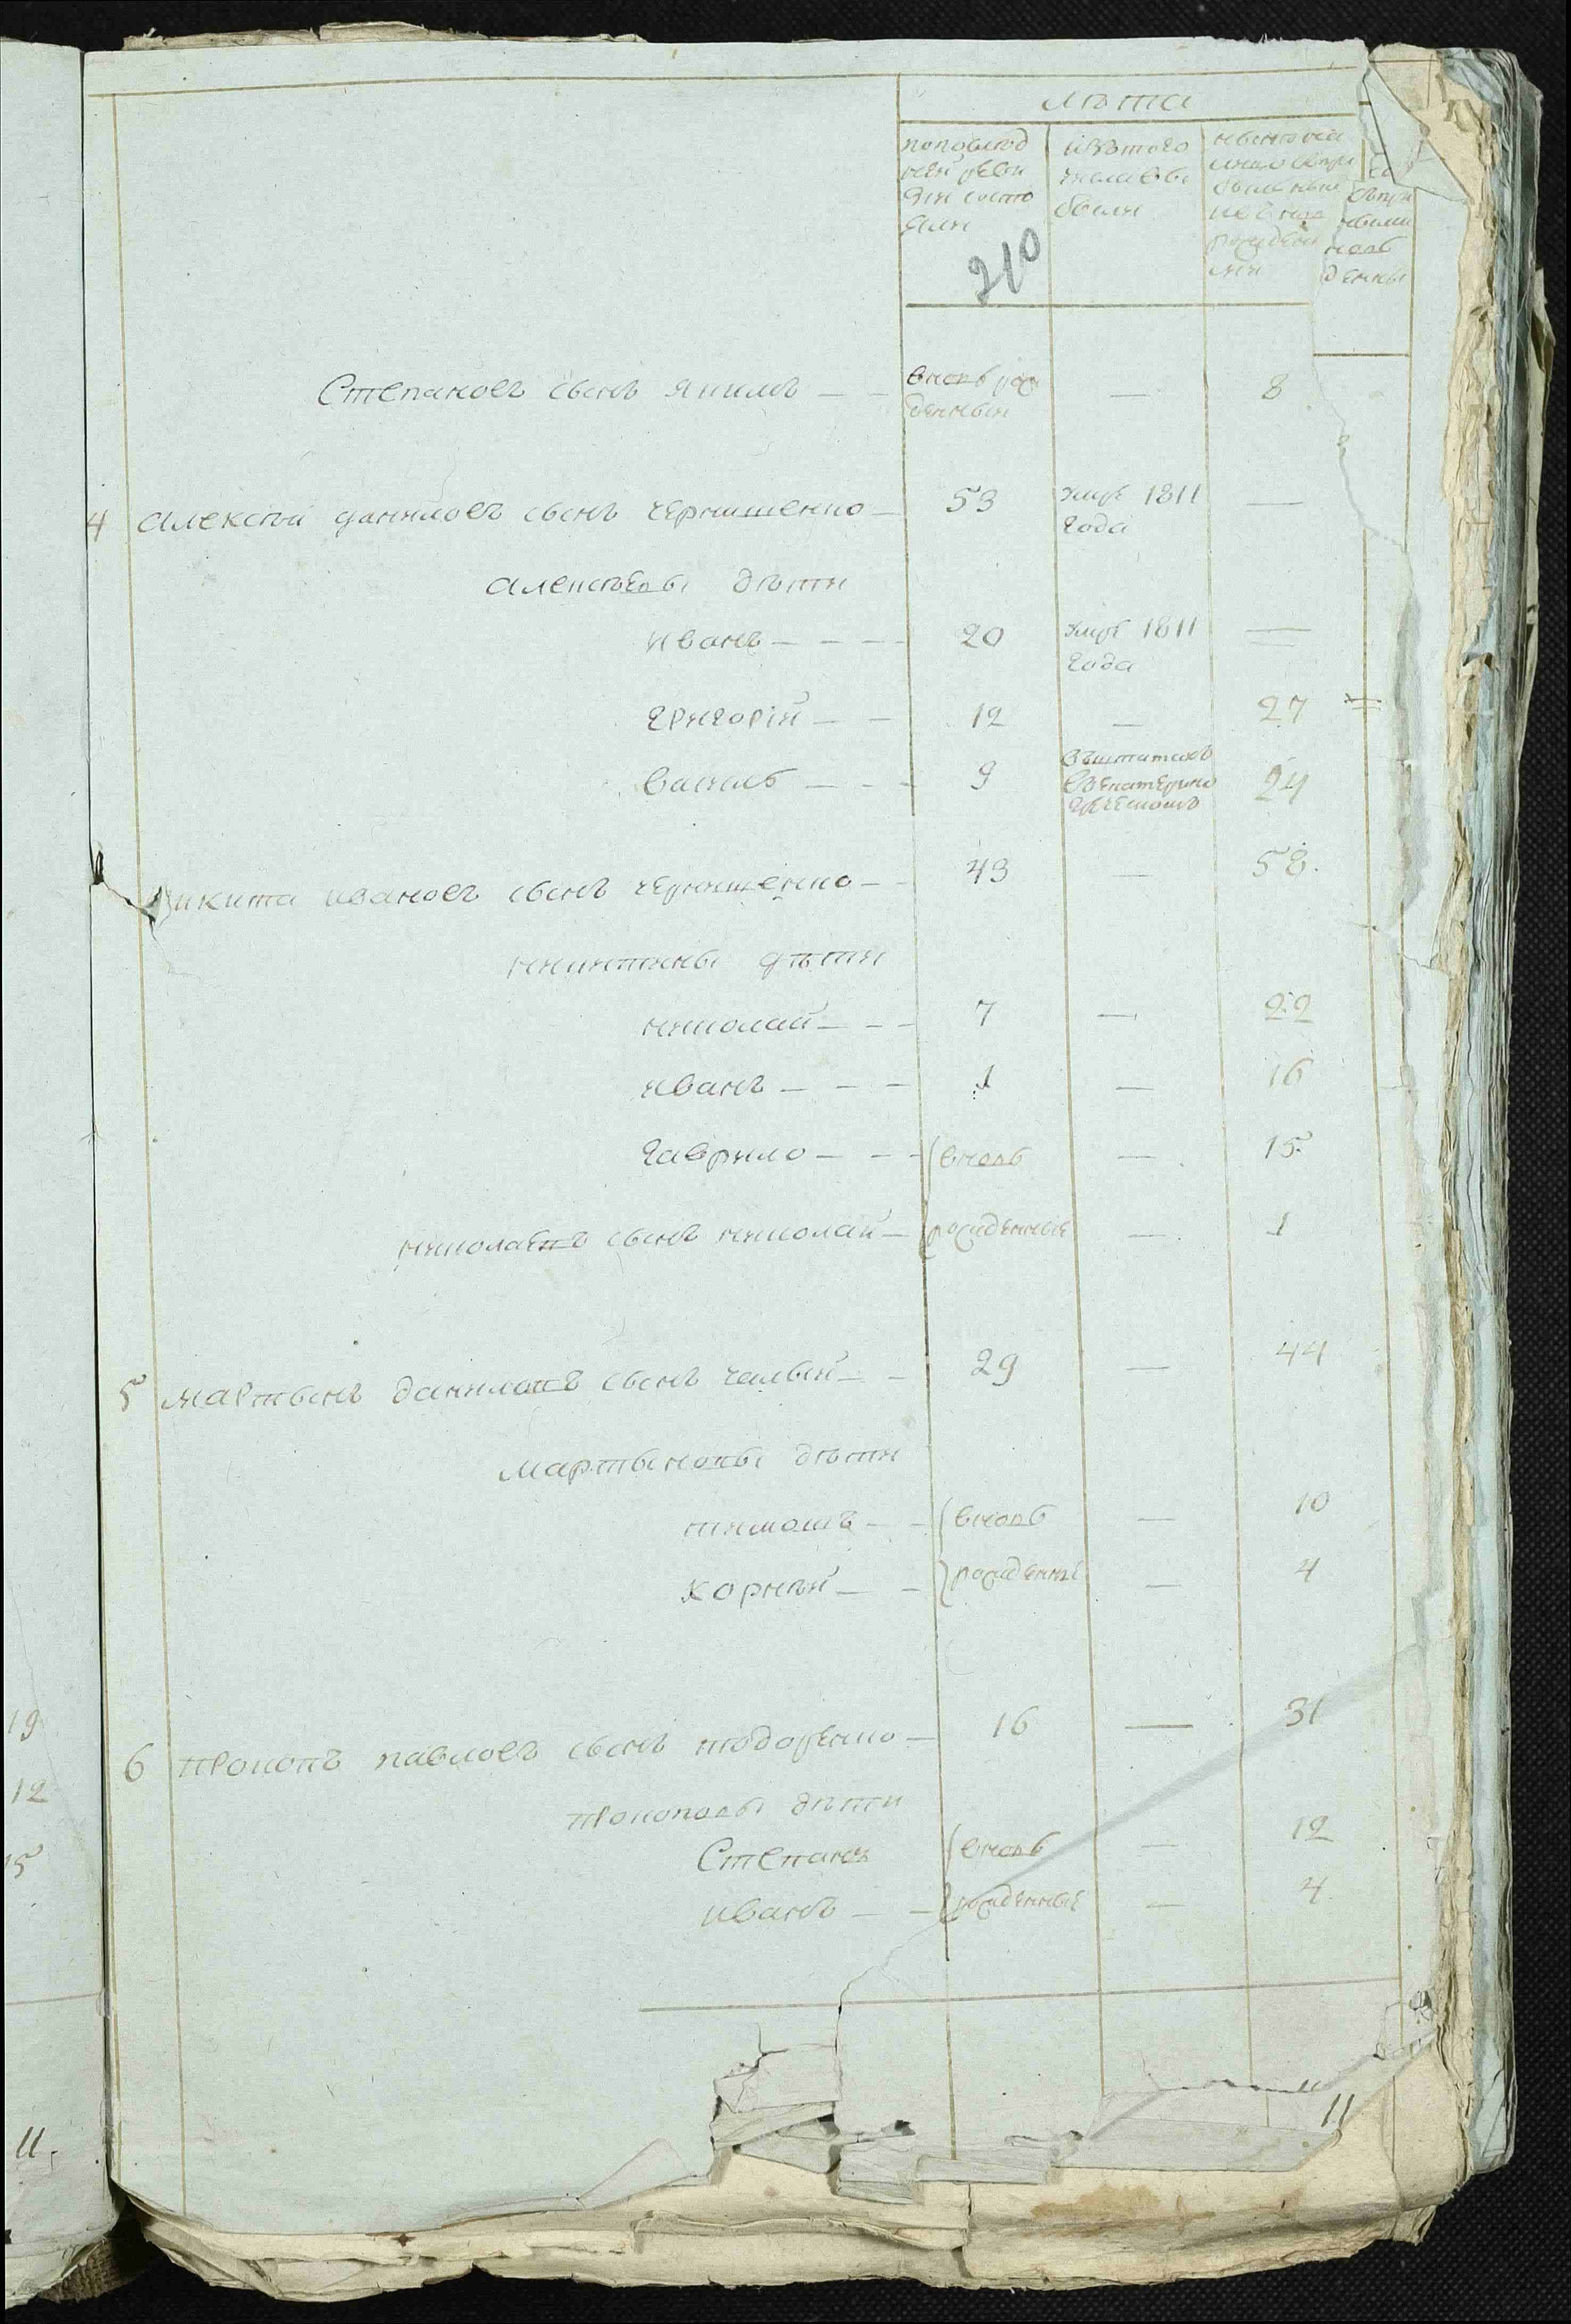 лѣта
попослѣд
ней реви
зіи состо
яли
изътого
числа вы
были
210
Степановъ сынъ якимъ — —
вновь рож
денный
—
8
4 алексѣй даниловъ сынъ чернишенко — 53 умре 1811 —
года
алексѣевы дѣти
иванъ — — — 20 умре 1811 —
года
григорій — — 12 — 27
василь — — — 9 24
никита ивановъ сынъ чернишенко — — 43 — 58.
никитины дѣти
николай — — — 7 — 22
иванъ — — — 1 — 16
гаврило — — — вновь — 15
николаевъ сынъ николай — рожденные — 1
5 мартынъ даниловъ сынъ чалый — — 29 — 44
мартыновы дѣти
тимошъ — — вновь — 10
корнѣй — — рожденные — 4
6 прокопъ павловъ сынъ тодоренко — 16 — 31
прокоповы дѣти
Степанъ вновь — 12
иванъ — — рожденные — 4
11
19
12
15
11.